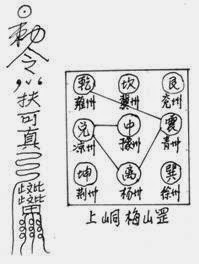 勅令扶可真
乾 坎 艮
雍州 冀州 兖州
兑 中 震
凉州 豫州 青州
坤 離 巽
荆州 杨州 徐州
上峒梅山罡